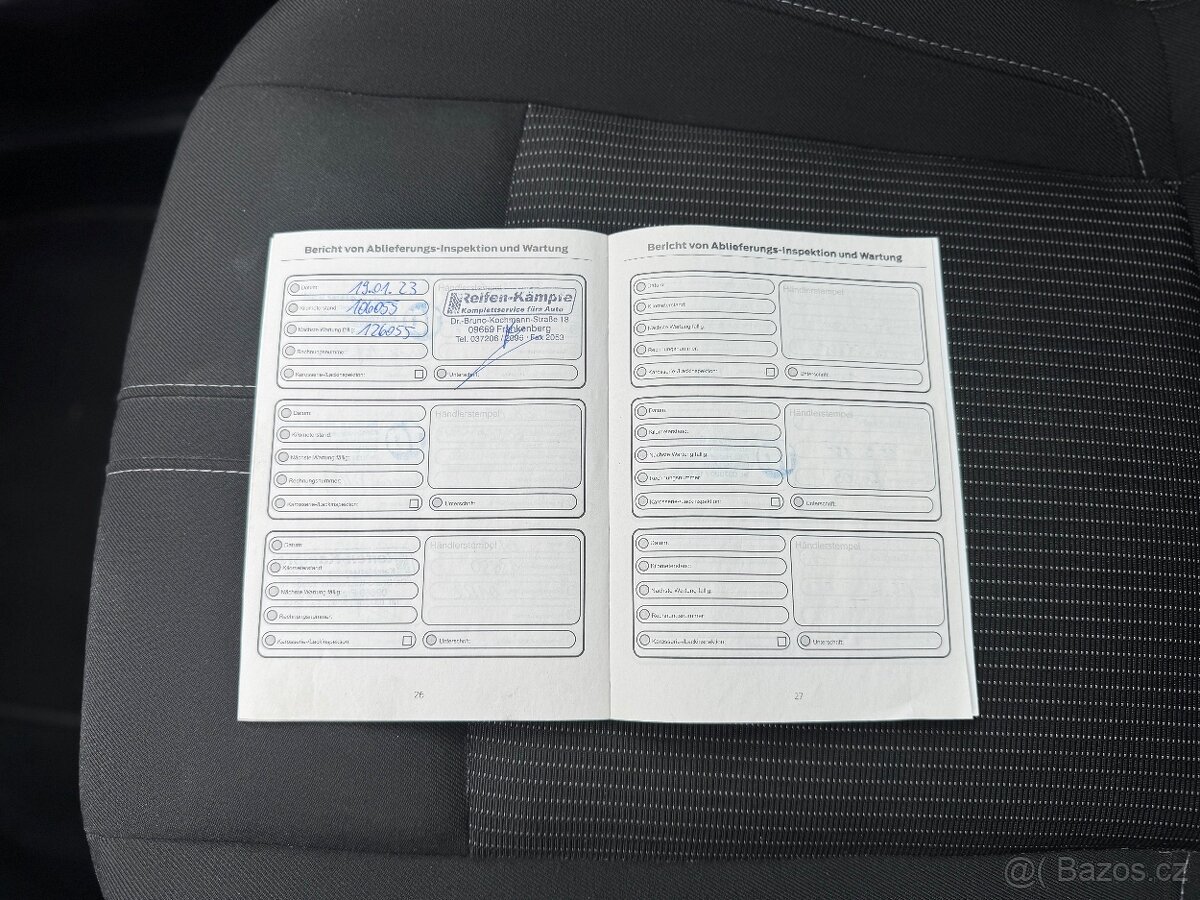 Bericht von Ablieferungs-Inspektion und Wartung
Datum: 19.01.23
Händlerstempel
Kilometerstand: 106055
Nächste Wartung fällig: 126055
Rechnungsnummer:
Karosserie-/Lackinspektion:
Unterschrift:
Reifen-Kämpfe
Komplettservice fürs Auto
Dr.-Bruno-Kochmann-Straße 18
09669 Frankenberg
Tel. 037206 / 2896 · Fax 2053
Datum:
Händlerstempel
Kilometerstand:
Nächste Wartung fällig:
Rechnungsnummer:
Karosserie-/Lackinspektion:
Unterschrift:
Datum:
Händlerstempel
Kilometerstand:
Nächste Wartung fällig:
Rechnungsnummer:
Karosserie-/Lackinspektion:
Unterschrift:
26
Bericht von Ablieferungs-Inspektion und Wartung
Datum:
Händlerstempel
Kilometerstand:
Nächste Wartung fällig:
Rechnungsnummer:
Karosserie-/Lackinspektion:
Unterschrift:
Datum:
Händlerstempel
Kilometerstand:
Nächste Wartung fällig:
Rechnungsnummer:
Karosserie-/Lackinspektion:
Unterschrift:
Datum:
Händlerstempel
Kilometerstand:
Nächste Wartung fällig:
Rechnungsnummer:
Karosserie-/Lackinspektion:
Unterschrift:
27
@( Bazos.cz